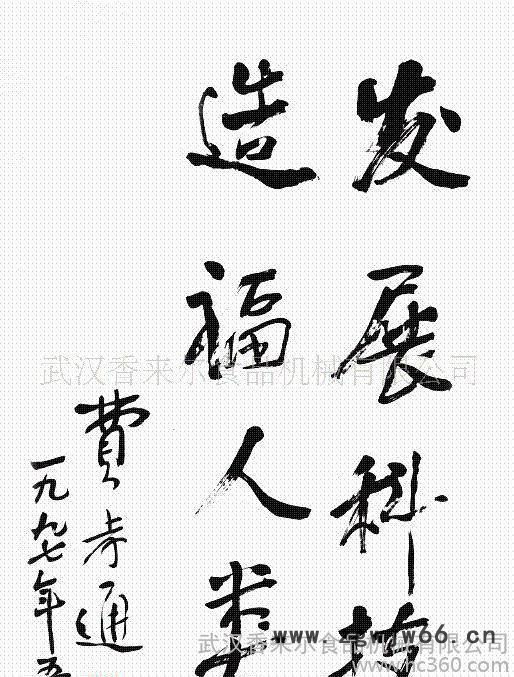 发展科技
造福人类
費孝通
一九九七年五
武汉香来尔食品机械有限公司
武汉香来尔食品机械有限公司
www.hc360.com